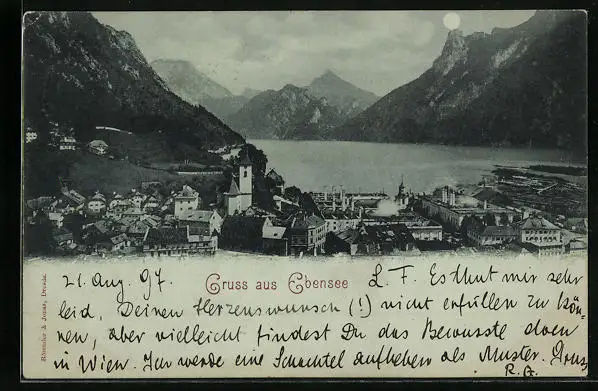 21. Aug. 97. Gruss aus Ebensee L. F. Es thut mir sehr
leid, Deinen Herzenswunsch (!) nicht erfüllen zu kön-
nen, aber vielleicht findest Du das Bewusste oben
in Wien. Ich werde eine Schachtel aufheben als Muster. Gruss
R. G.
Römmler & Jonas, Dresden.